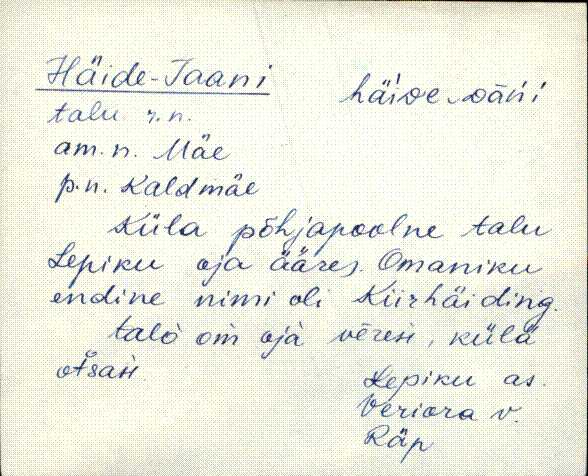 Häide-Jaani häide
talu r.n.
am.n. Mäe
p.n. Kaldmäe
Küla põhjapoolne talu
Lepiku oja ääres. Omaniku
endine nimi oli Kiirhäiding.
talo om oja veren, külä
otsan
Lepiku as.
Veriora v.
Räp